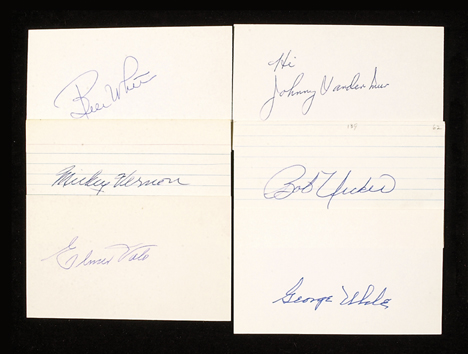 Bill White
Mickey Vernon
Elmer Valo
Hi
Johnny Vander Meer
Bob Uecker
George Uhle